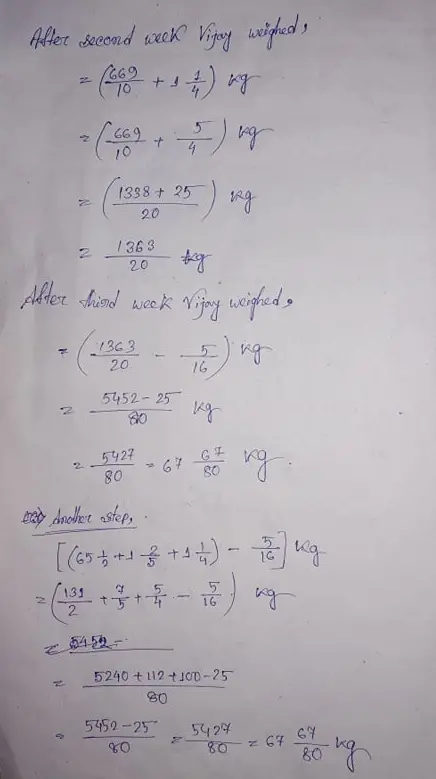 After second week Vijay weighed,
= (669/10 + 1 1/4) kg
= (669/10 + 5/4) kg
= (1338 + 25 / 20) kg
= 1363/20 kg
After third week Vijay weighed,
= (1363/20 - 5/16) kg
= 5452 - 25 / 80 kg
= 5427/80 = 67 67/80 kg.
Another step,
[(65 1/2 + 1 2/5 + 1 1/4) - 5/16] kg
= (131/2 + 7/5 + 5/4 - 5/16) kg
= 5452 -
= 5240 + 112 + 100 - 25 / 80
= 5452 - 25 / 80 = 5427/80 = 67 67/80 kg